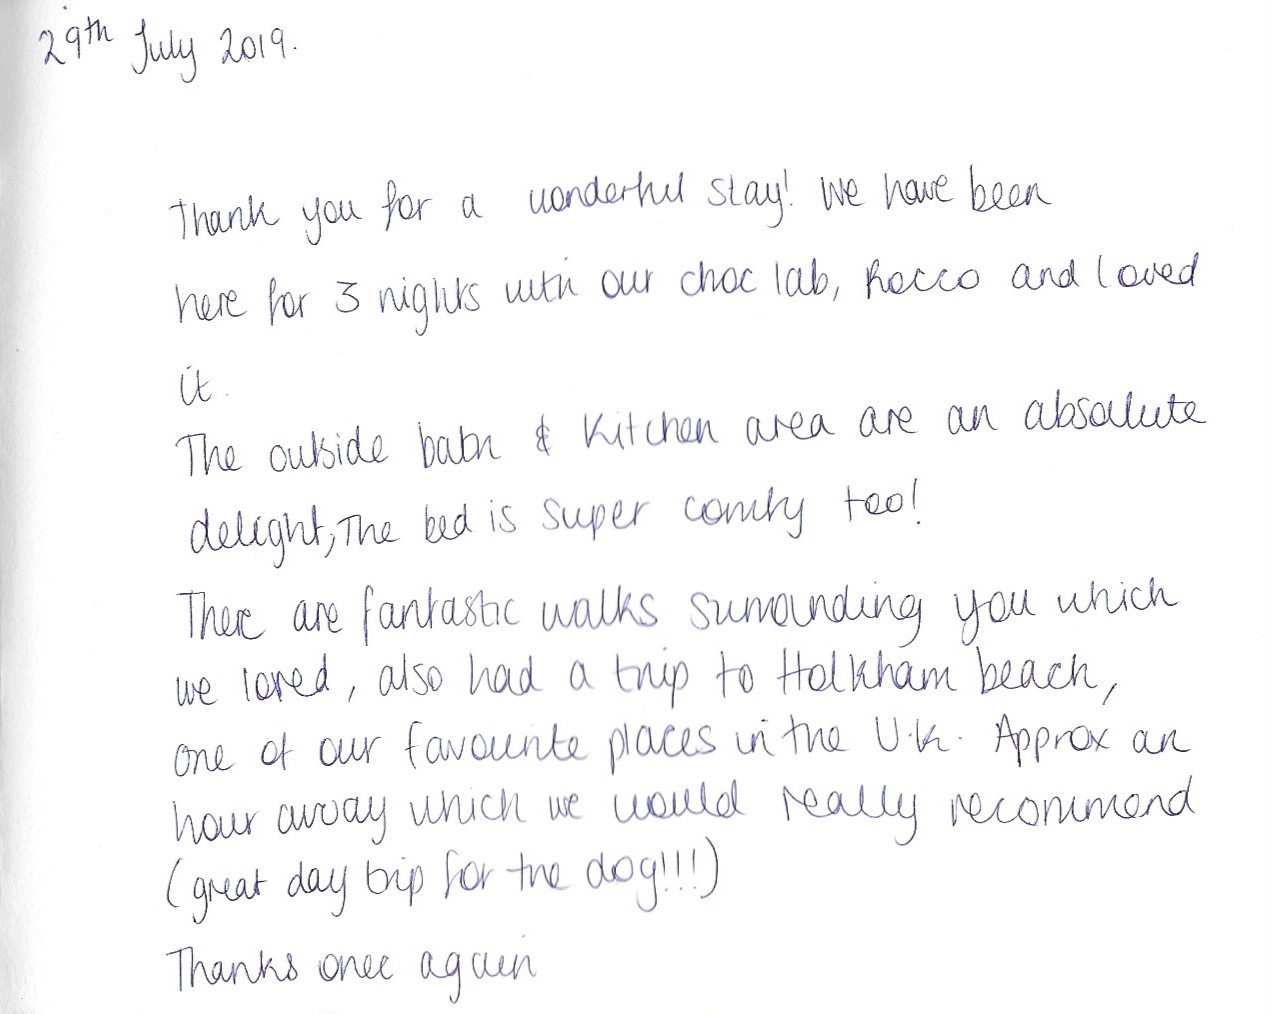 29th July 2019.
Thank you for a wonderful stay! We have been
here for 3 nights with our choc lab, Rocco and loved
it.
The outside bath & kitchen area are an absolute
delight, The bed is super comfy too!
There are fantastic walks surrounding you which
we loved, also had a trip to Holkham beach,
one of our favourite places in the U.K. Approx an
hour away which we would really recommend
(great day trip for the dog!!!)
Thanks once again